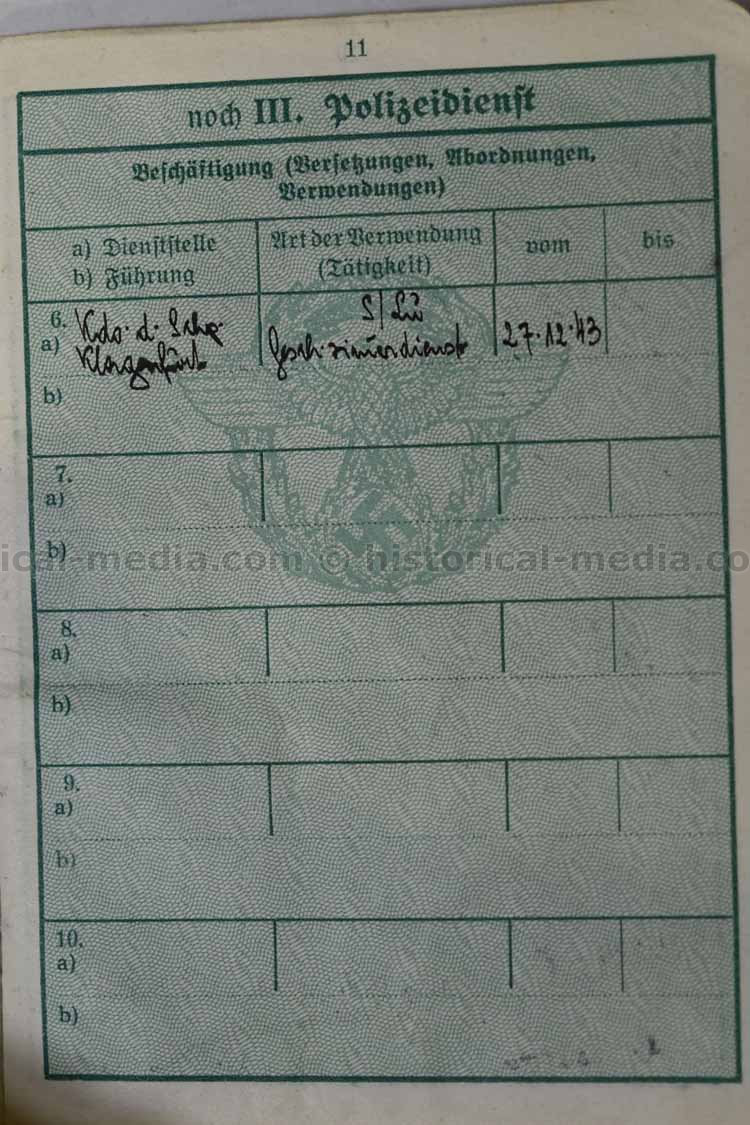 11
noch III. Polizeidienst
Beschäftigung (Versetzungen, Abordnungen,
Verwendungen)
a) Dienststelle
b) Führung
Art der Verwendung
(Tätigkeit)
vom
bis
6.
a) Kdo. d. Schp.
Klagenfurt
S/Lü
zimmerdienst
27.12.43
b)
7.
a)
b)
ical-media.com © historical-media.co
8.
a)
b)
9.
a)
b)
10.
a)
b)